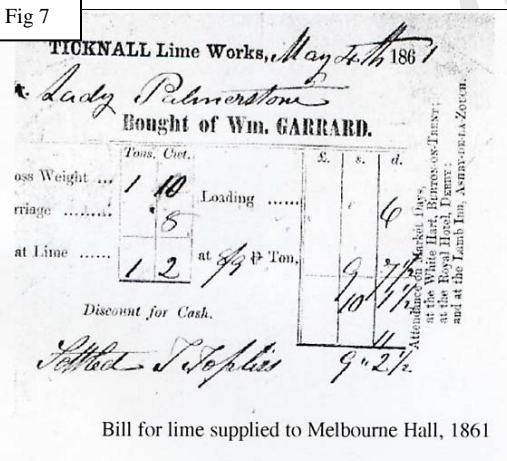 Fig 7
TICKNALL Lime Works, May 4th 1861
Lady Palmerstone
Bought of Wm. GARRARD.
Tons. Cwt. £. s. d.
oss Weight ... 1 10 Loading ...... 6
rriage ........ 8
at Lime ...... 1 2 at 8/9 ⅌ Ton, 9 7½
10 1½
Discount for Cash. 11
Settled T Toplis 9 " 2½
Attendance on Market Days,
at the White Hart, Burton-on-Trent;
at the Royal Hotel, Derby;
and at the Lamb Inn, Ashby-de-la-Zouch.
Bill for lime supplied to Melbourne Hall, 1861